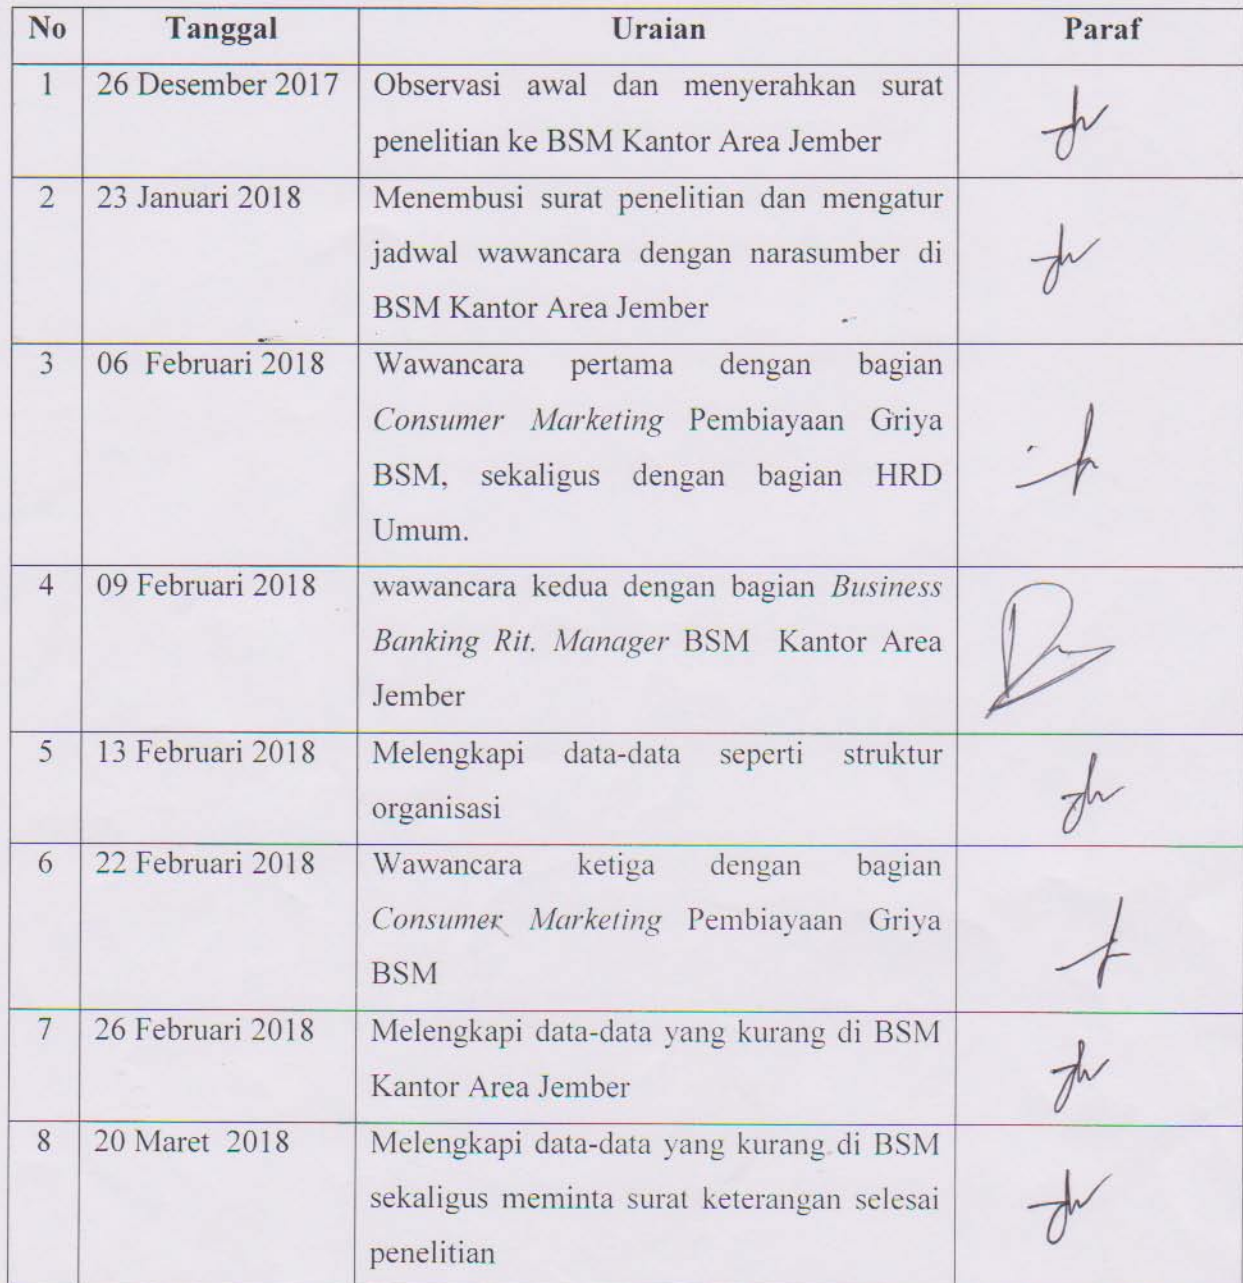 No Tanggal Uraian Paraf
1 26 Desember 2017 Observasi awal dan menyerahkan surat
penelitian ke BSM Kantor Area Jember
2 23 Januari 2018 Menembusi surat penelitian dan mengatur
jadwal wawancara dengan narasumber di
BSM Kantor Area Jember
3 06 Februari 2018 Wawancara pertama dengan bagian
Consumer Marketing Pembiayaan Griya
BSM, sekaligus dengan bagian HRD
Umum.
4 09 Februari 2018 wawancara kedua dengan bagian Business
Banking Rit. Manager BSM Kantor Area
Jember
5 13 Februari 2018 Melengkapi data-data seperti struktur
organisasi
6 22 Februari 2018 Wawancara ketiga dengan bagian
Consumer Marketing Pembiayaan Griya
BSM
7 26 Februari 2018 Melengkapi data-data yang kurang di BSM
Kantor Area Jember
8 20 Maret 2018 Melengkapi data-data yang kurang di BSM
sekaligus meminta surat keterangan selesai
penelitian